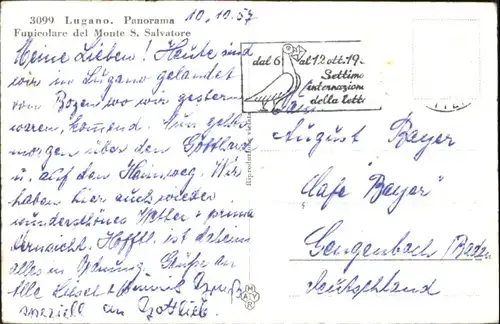 3099 Lugano. Panorama
Funicolare del Monte S. Salvatore
10.10.57
Meine Lieben! Heute sind
wir in Lugano gelandet
von Bozen wo wir gestern
waren, kommend. Nun geht's
morgen über den Gotthard
u. auf den Heimweg. Wir
haben hier auch wieder
wunderschönes Wetter + prima
Fernsicht. Hofftl. ist daheim
alles in Ordnung. Grüße an
Alle Liesel +
speziell an Gottlieb.
dal 6 al 12 ott. 19
Settima
internazion
della lette
August Bayer
"Cafe Bayer"
Gengenbach/Baden
Deutschland
Riproduzione vietata
MAYR